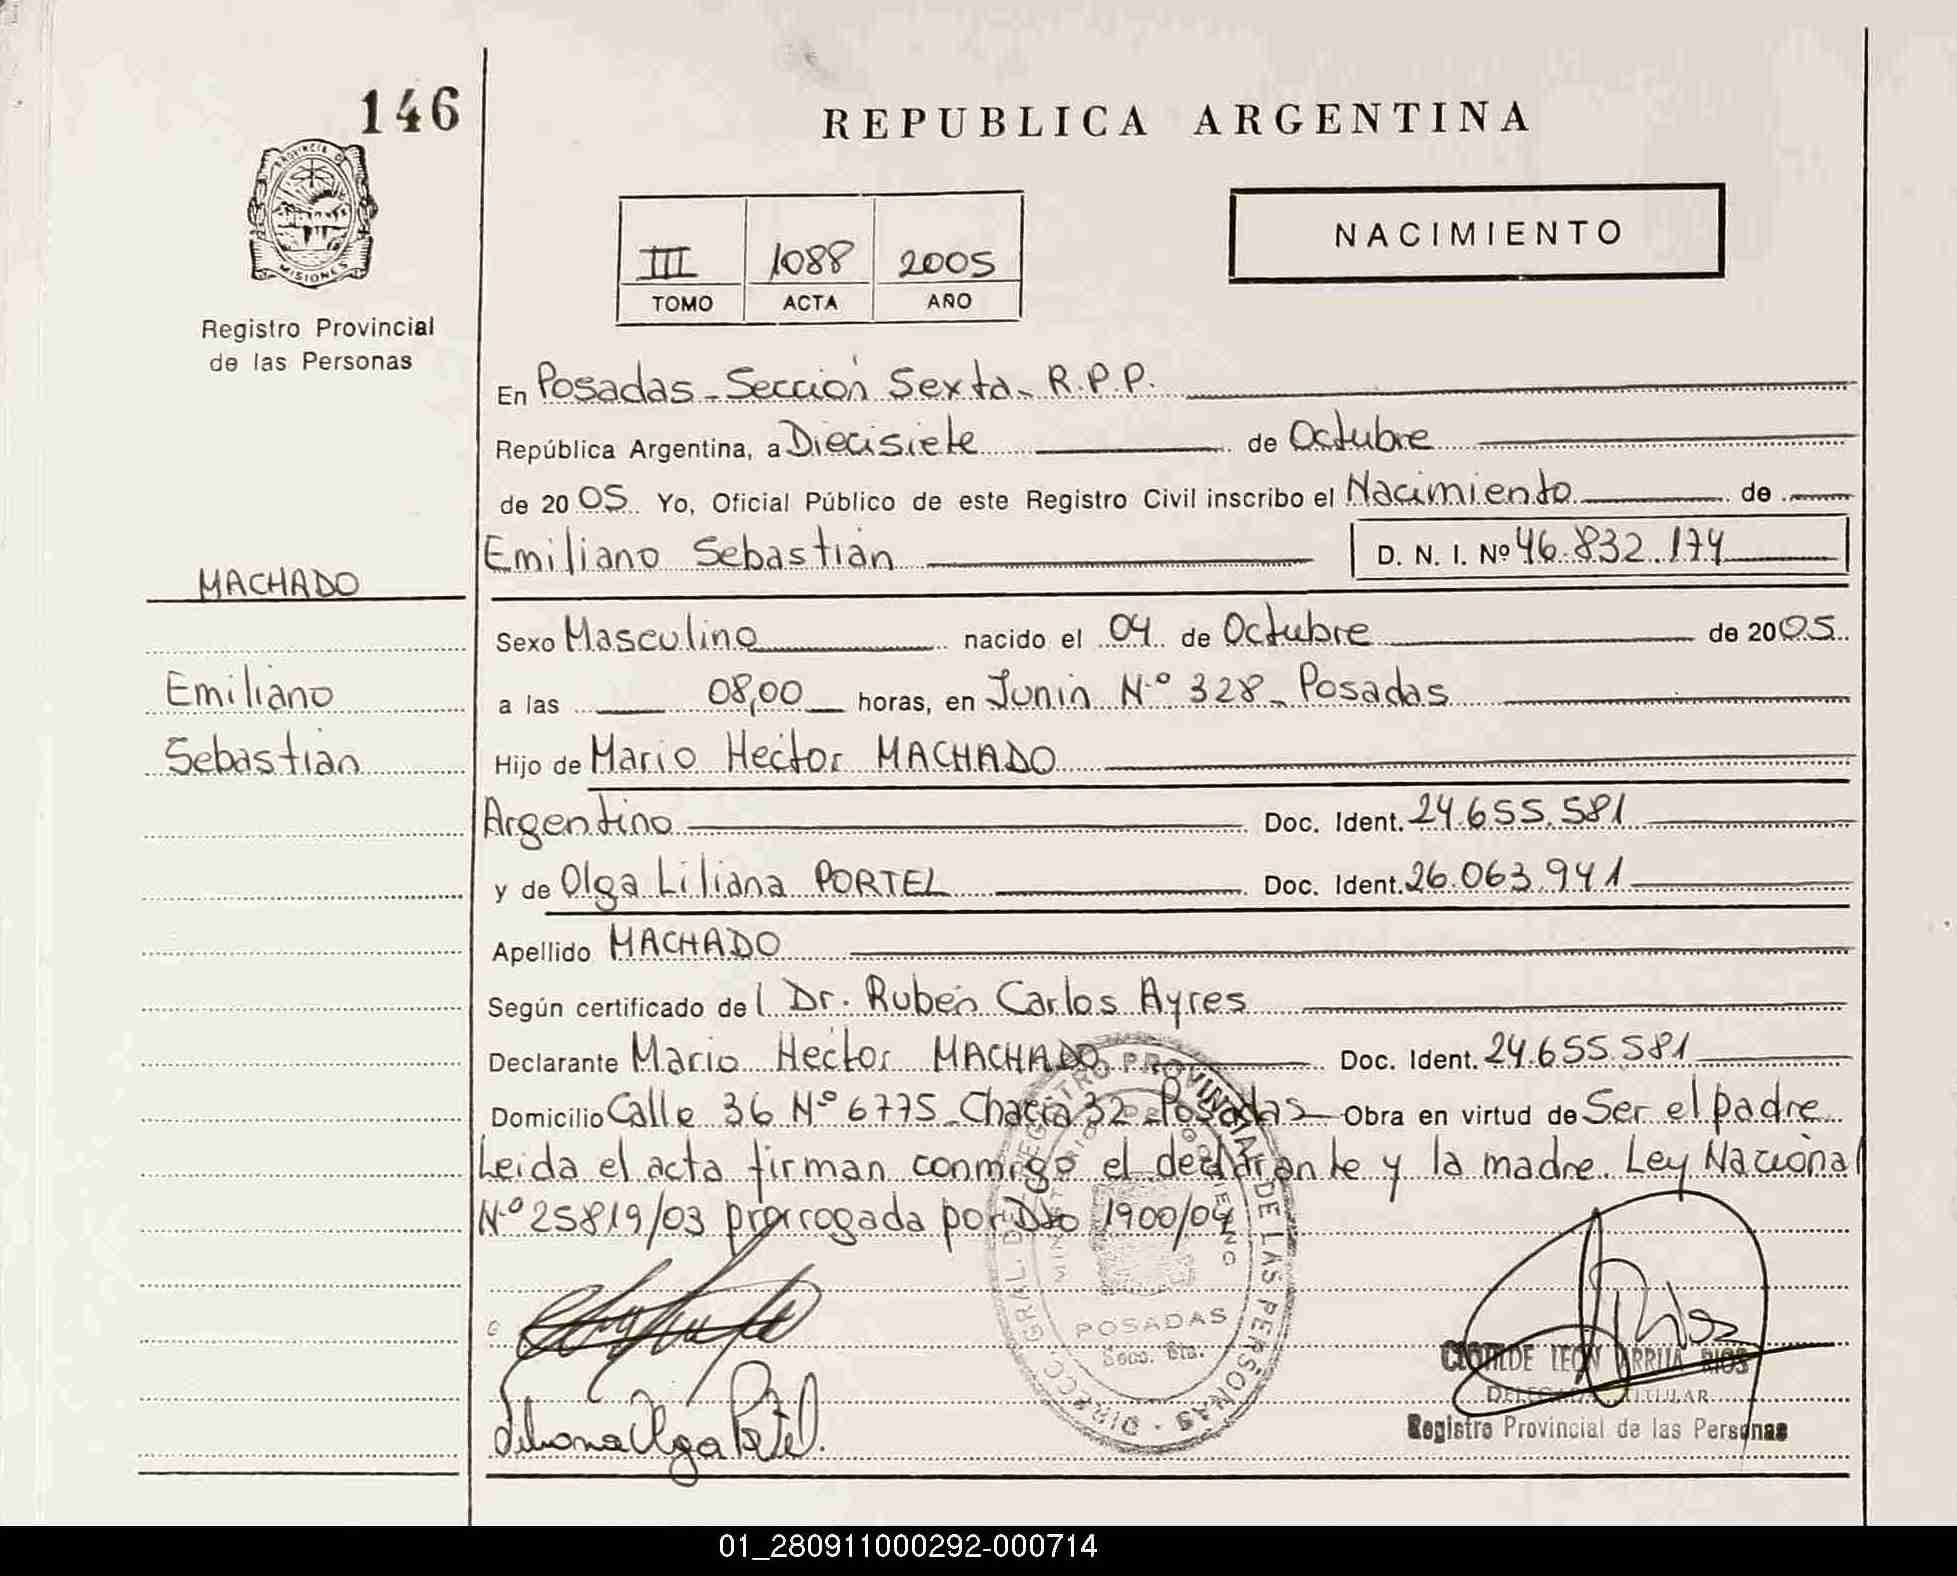 146
REPUBLICA ARGENTINA
PROVINCIA D
MISIONES
Registro Provincial
de las Personas
NACIMIENTO
III 1088 2005
TOMO ACTA AÑO
En Posadas - Sección Sexta - R.P.P.
República Argentina, a Diecisiete de Octubre
de 2005 Yo, Oficial Público de este Registro Civil inscribo el Nacimiento de
Emiliano Sebastián D. N. I. Nº 46.832.174
MACHADO
Emiliano
Sebastián
Sexo Masculino nacido el 04 de Octubre de 2005
a las 08,00 horas, en Junín Nº 328 - Posadas
Hijo de Mario Hector MACHADO
Argentino Doc. Ident. 24.655.581
y de Olga Liliana PORTEL Doc. Ident. 26.063.941
Apellido MACHADO
Según certificado del Dr. Rubén Carlos Ayres
Declarante Mario Hector MACHADO Doc. Ident. 24.655.581
Domicilio Calle 36 Nº 6775 - Chacra 32 - Posadas - Obra en virtud de Ser el padre
Leida el acta firman conmigo el declarante y la madre. Ley Nacional
Nº 25819/03 prorrogada por Dto 1900/04
DIRECC. GRAL. DE REGISTRO PROVINCIAL DE LAS PERSONAS
MINISTERIO DE GOBIERNO
POSADAS
Secc. 6ta.
CLOTILDE LEON ARRUA RIOS
DELEGADA TITULAR
Registro Provincial de las Personas
01_280911000292-000714